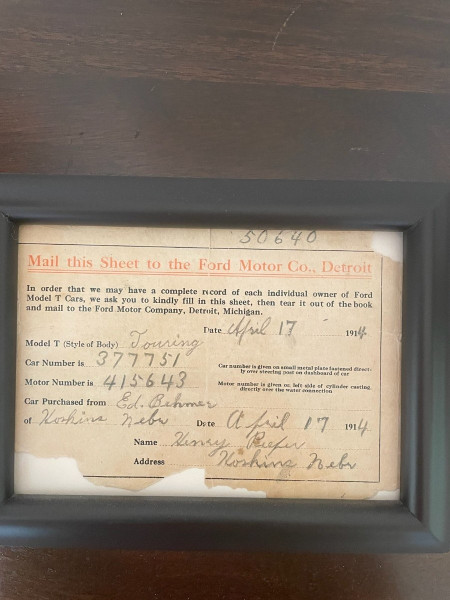 50640
Mail this Sheet to the Ford Motor Co., Detroit
In order that we may have a complete record of each individual owner of Ford
Model T Cars, we ask you to kindly fill in this sheet, then tear it out of the book
and mail to the Ford Motor Company, Detroit, Michigan.
Date April 17 1914
Model T (Style of Body) Touring
Car Number is 377751
Car number is given on small metal plate fastened direct-
ly over steering post on dashboard of car
Motor Number is 415643
Motor number is given on left side of cylinder casting
directly over the water connection
Car Purchased from Ed. Behmer
of Hoskins Nebr Date April 17 1914
Name Henry
Address Hoskins Nebr